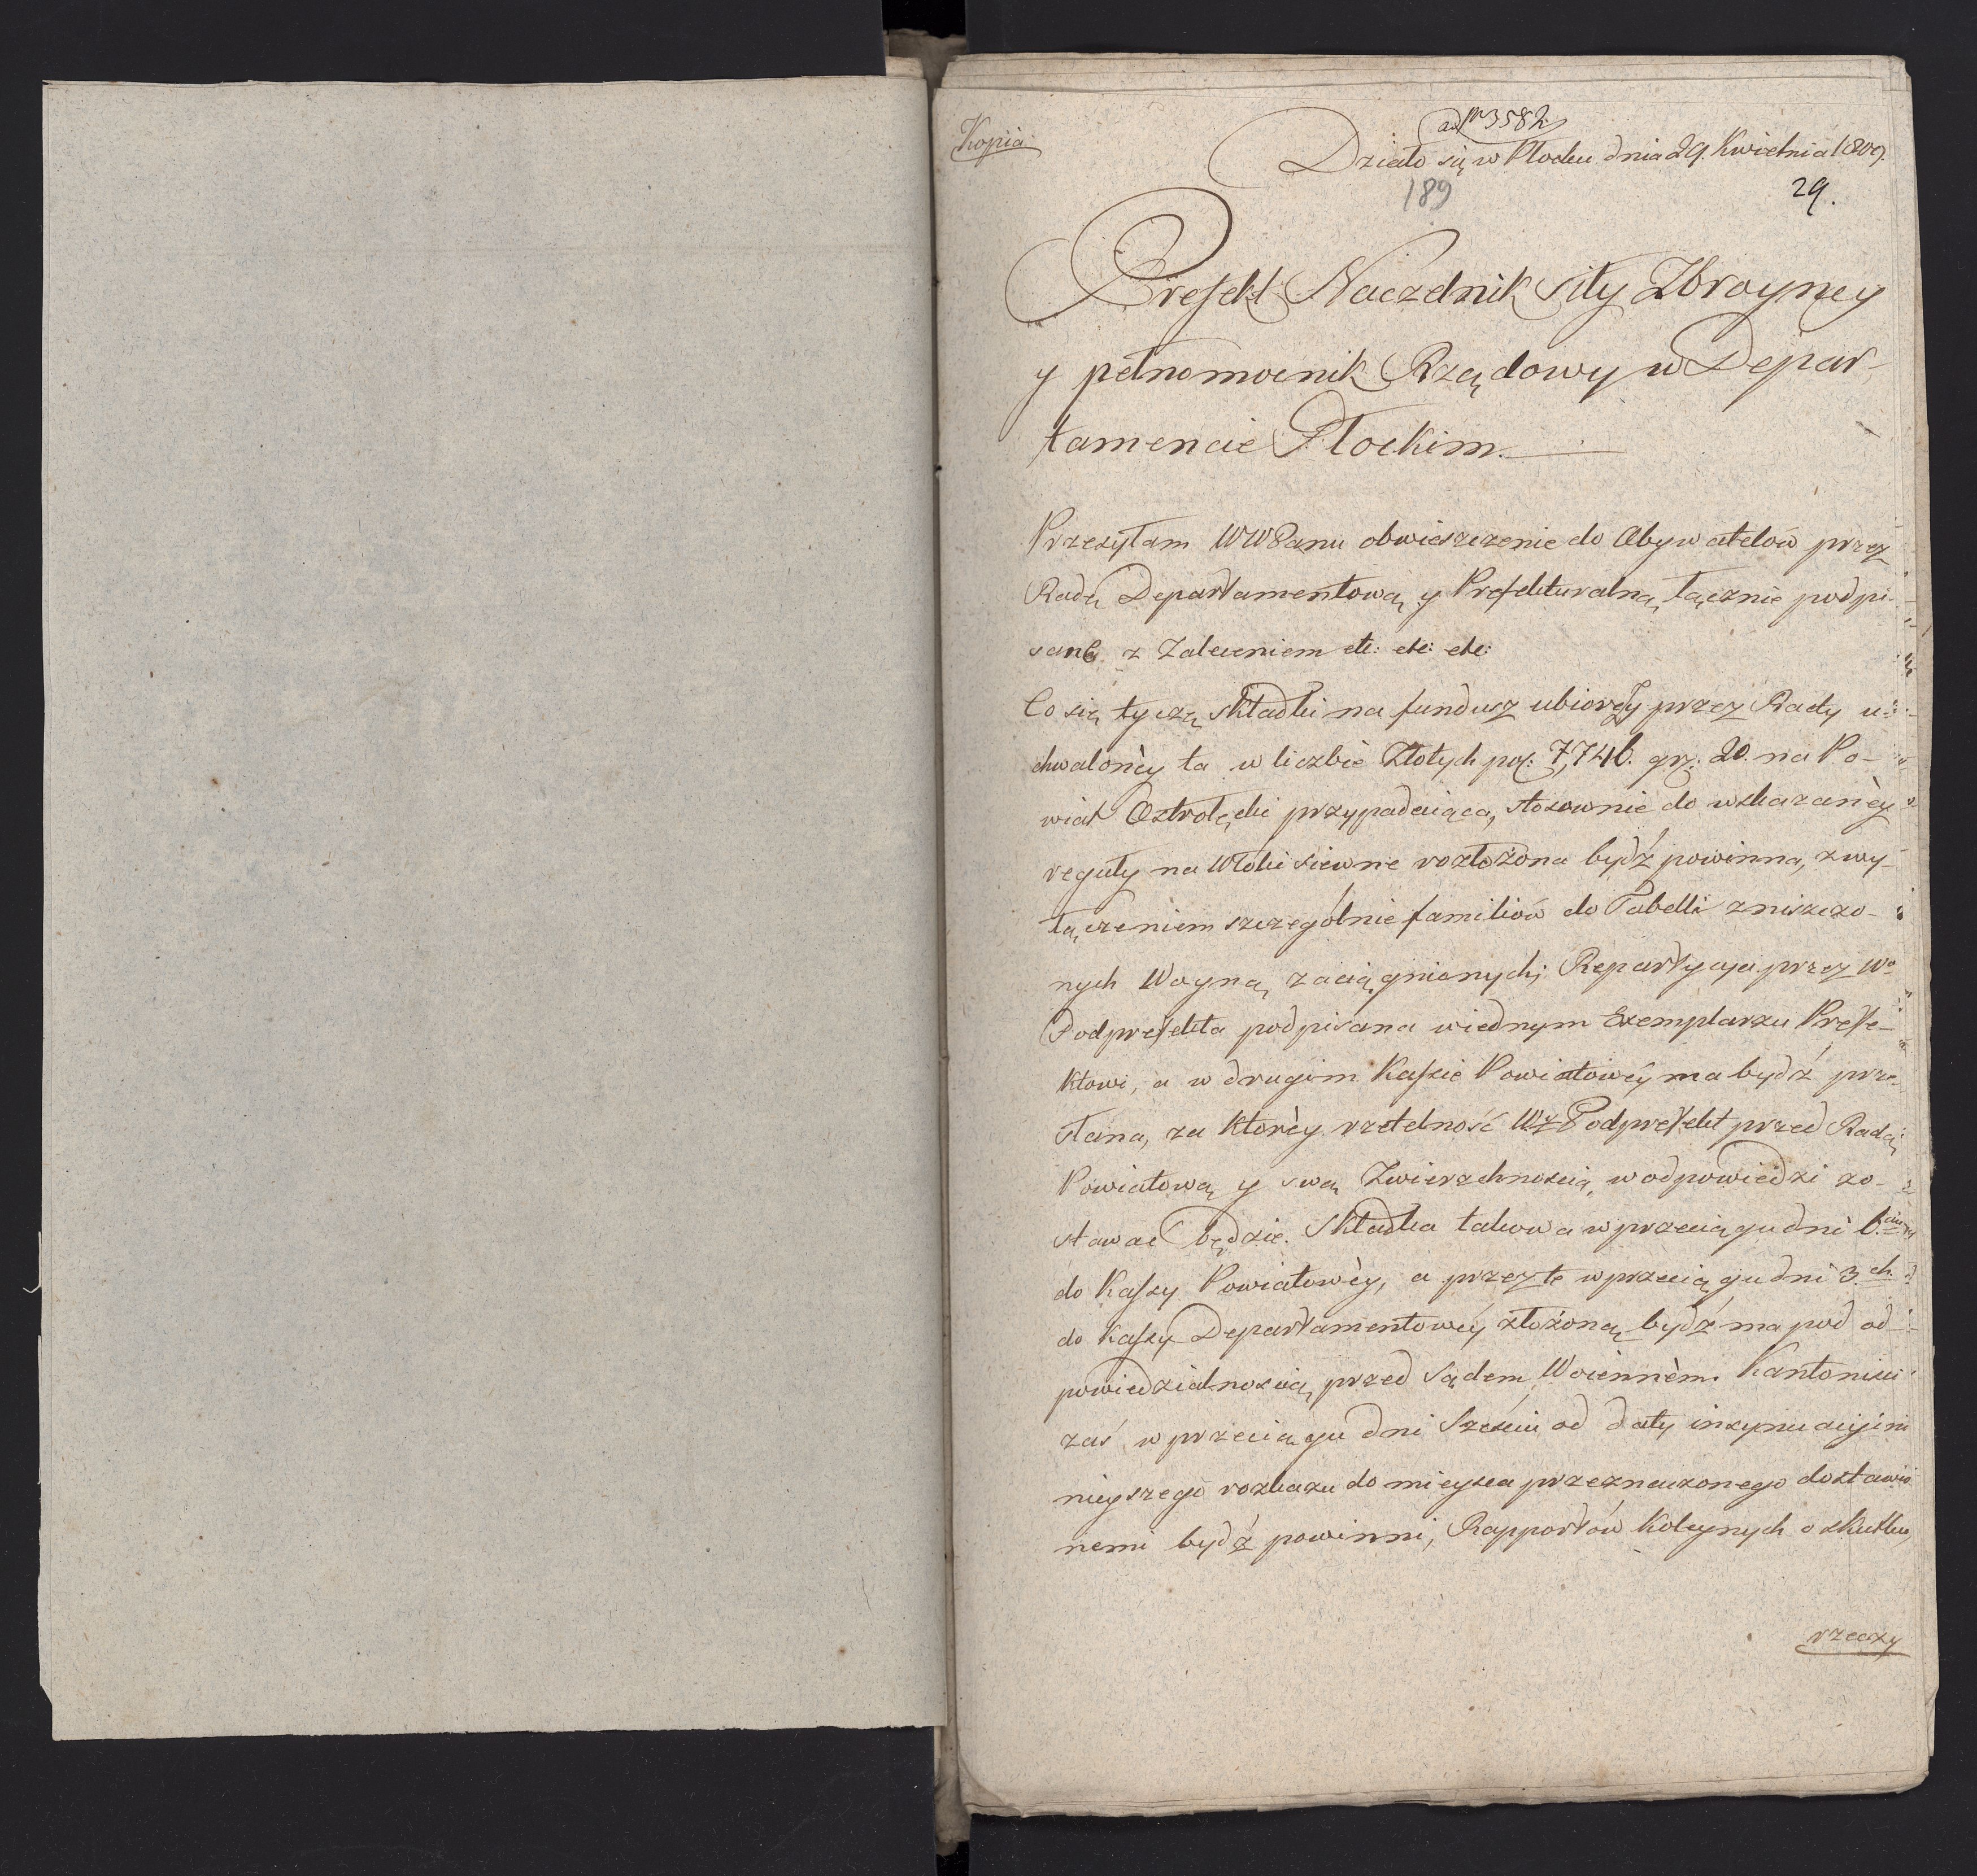 Kopia
ad N 3582.
Działo się w Płocku dnia 29. Kwietnia 1809.
189
29.
Prefekt Naczelnik siły Zbroyney
y pełnomocnik Rządowy w Depar-
tamencie Płockim.
Przesyłam WWPanu obwieszczenie do Obywatelów przez
Radę Departamentową y Prefekturalną łącznie podpi-
sane z Zaleceniem etc: etc: etc:
Co się tyczą składki na fundusz przez Rady u-
chwalonėy ta w liczbie Złotych pol: 7,746. gr: 20. na Po-
wiat Ostrołęcki przypadaiąca, stosownie do wskazanėy
reguły na Włóki siewne rozłożona bydź powinna, z wy-
łączeniem szczególnie familiów do Tabelli zniszczo-
nych Woyną zaciągnionych; Repartycya przez Wo
Podprefekta podpisana w iednym Exemplarzu Prefe-
ktowi, a w drugim Kassie Powiatowėy ma bydź prze-
słana, za którėy rzetelność Podprefekt przed Radą
Powiatową y swą Zwierzchnością w odpowiedzi zo-
stawać będzie. Składka takowa w przeciągu dni 6.ciu
do Kassy Powiatowėy, a przez tę w przeciągu dni 3.ch
do Kassy Departamentowėy złożoną bydź ma pod od
powiedzialnością przed Sądem Woiennėm. Kantoniści
zaś w przeciągu dni Sześciu od daty insynuacyi ni
nieyszego rozkazu do mieysca przeznaczonego dostawio
nemi bydź powinni, Rapportów kolėynych o skutku,
rzeczy